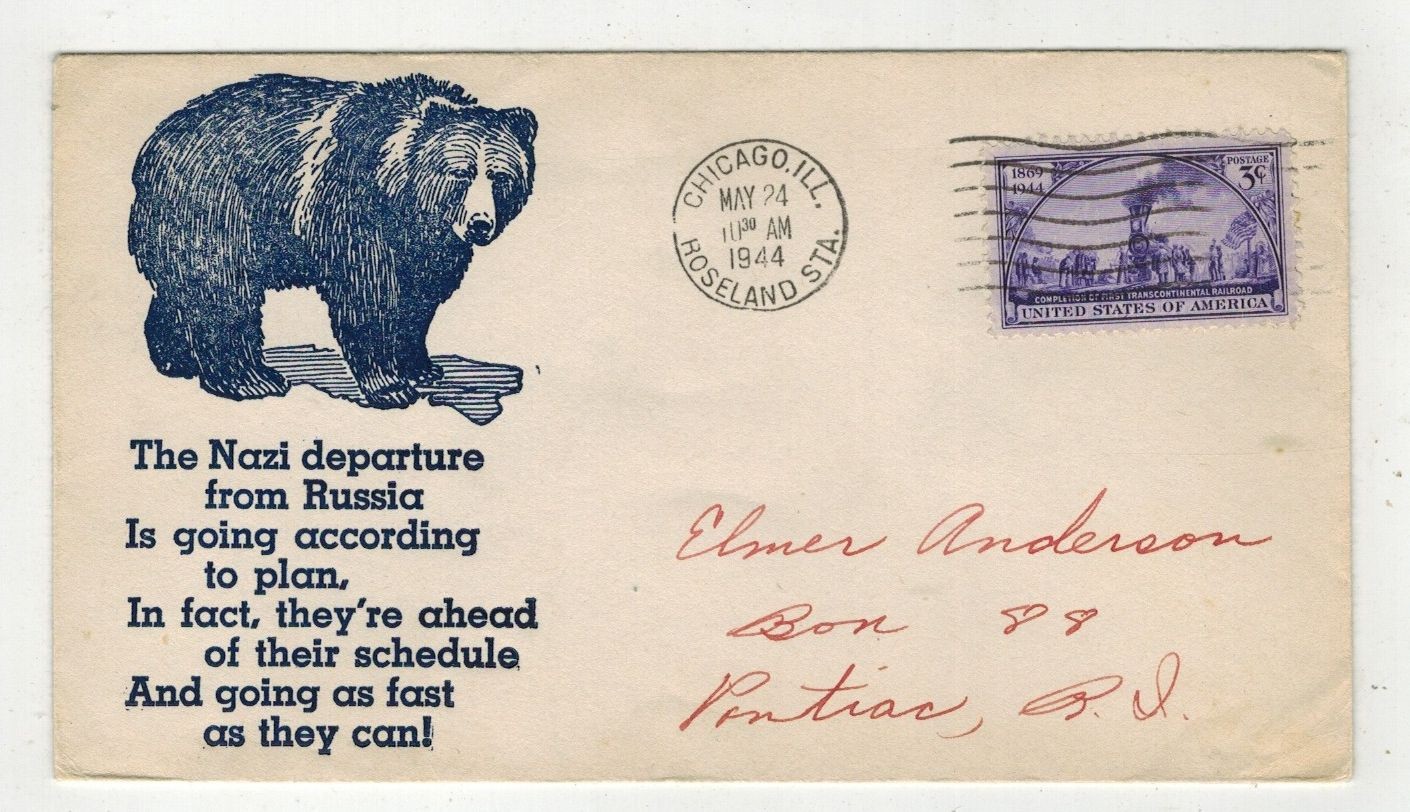 The Nazi departure
from Russia
Is going according
to plan,
In fact, they're ahead
of their schedule
And going as fast
as they can!
CHICAGO, ILL.
MAY 24
10 30 AM
1944
ROSELAND STA.
1869
1944
POSTAGE
3¢
COMPLETION OF FIRST TRANSCONTINENTAL RAILROAD
UNITED STATES OF AMERICA
Elmer Anderson
Box 88
Pontiac, R. I.